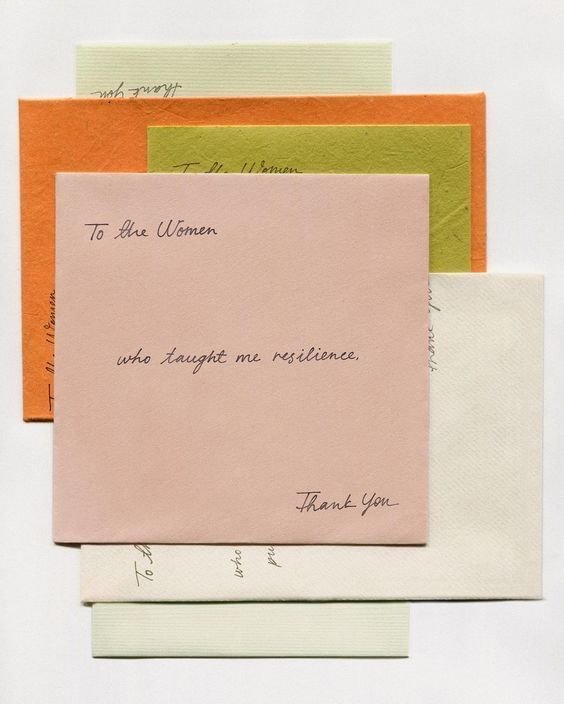 thank you
To the Women
To the Women
who taught me resilience.
Thank You
To the Women
Thank You
To th
who